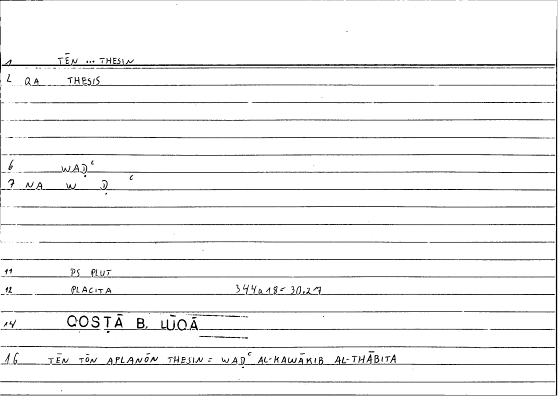 1 TĒN ... THESIN
2 QA THESIS
6 WAḌʿ
7 NA W Ḍ ʿ
11 PS PLUT
12 PLACITA 344a18 = 30.27
14 QOSṬĀ B. LŪQĀ
16 TĒN TŌN APLANŌN THESIN = WAḌʿ AL-KAWĀKIB AL-THĀBITA